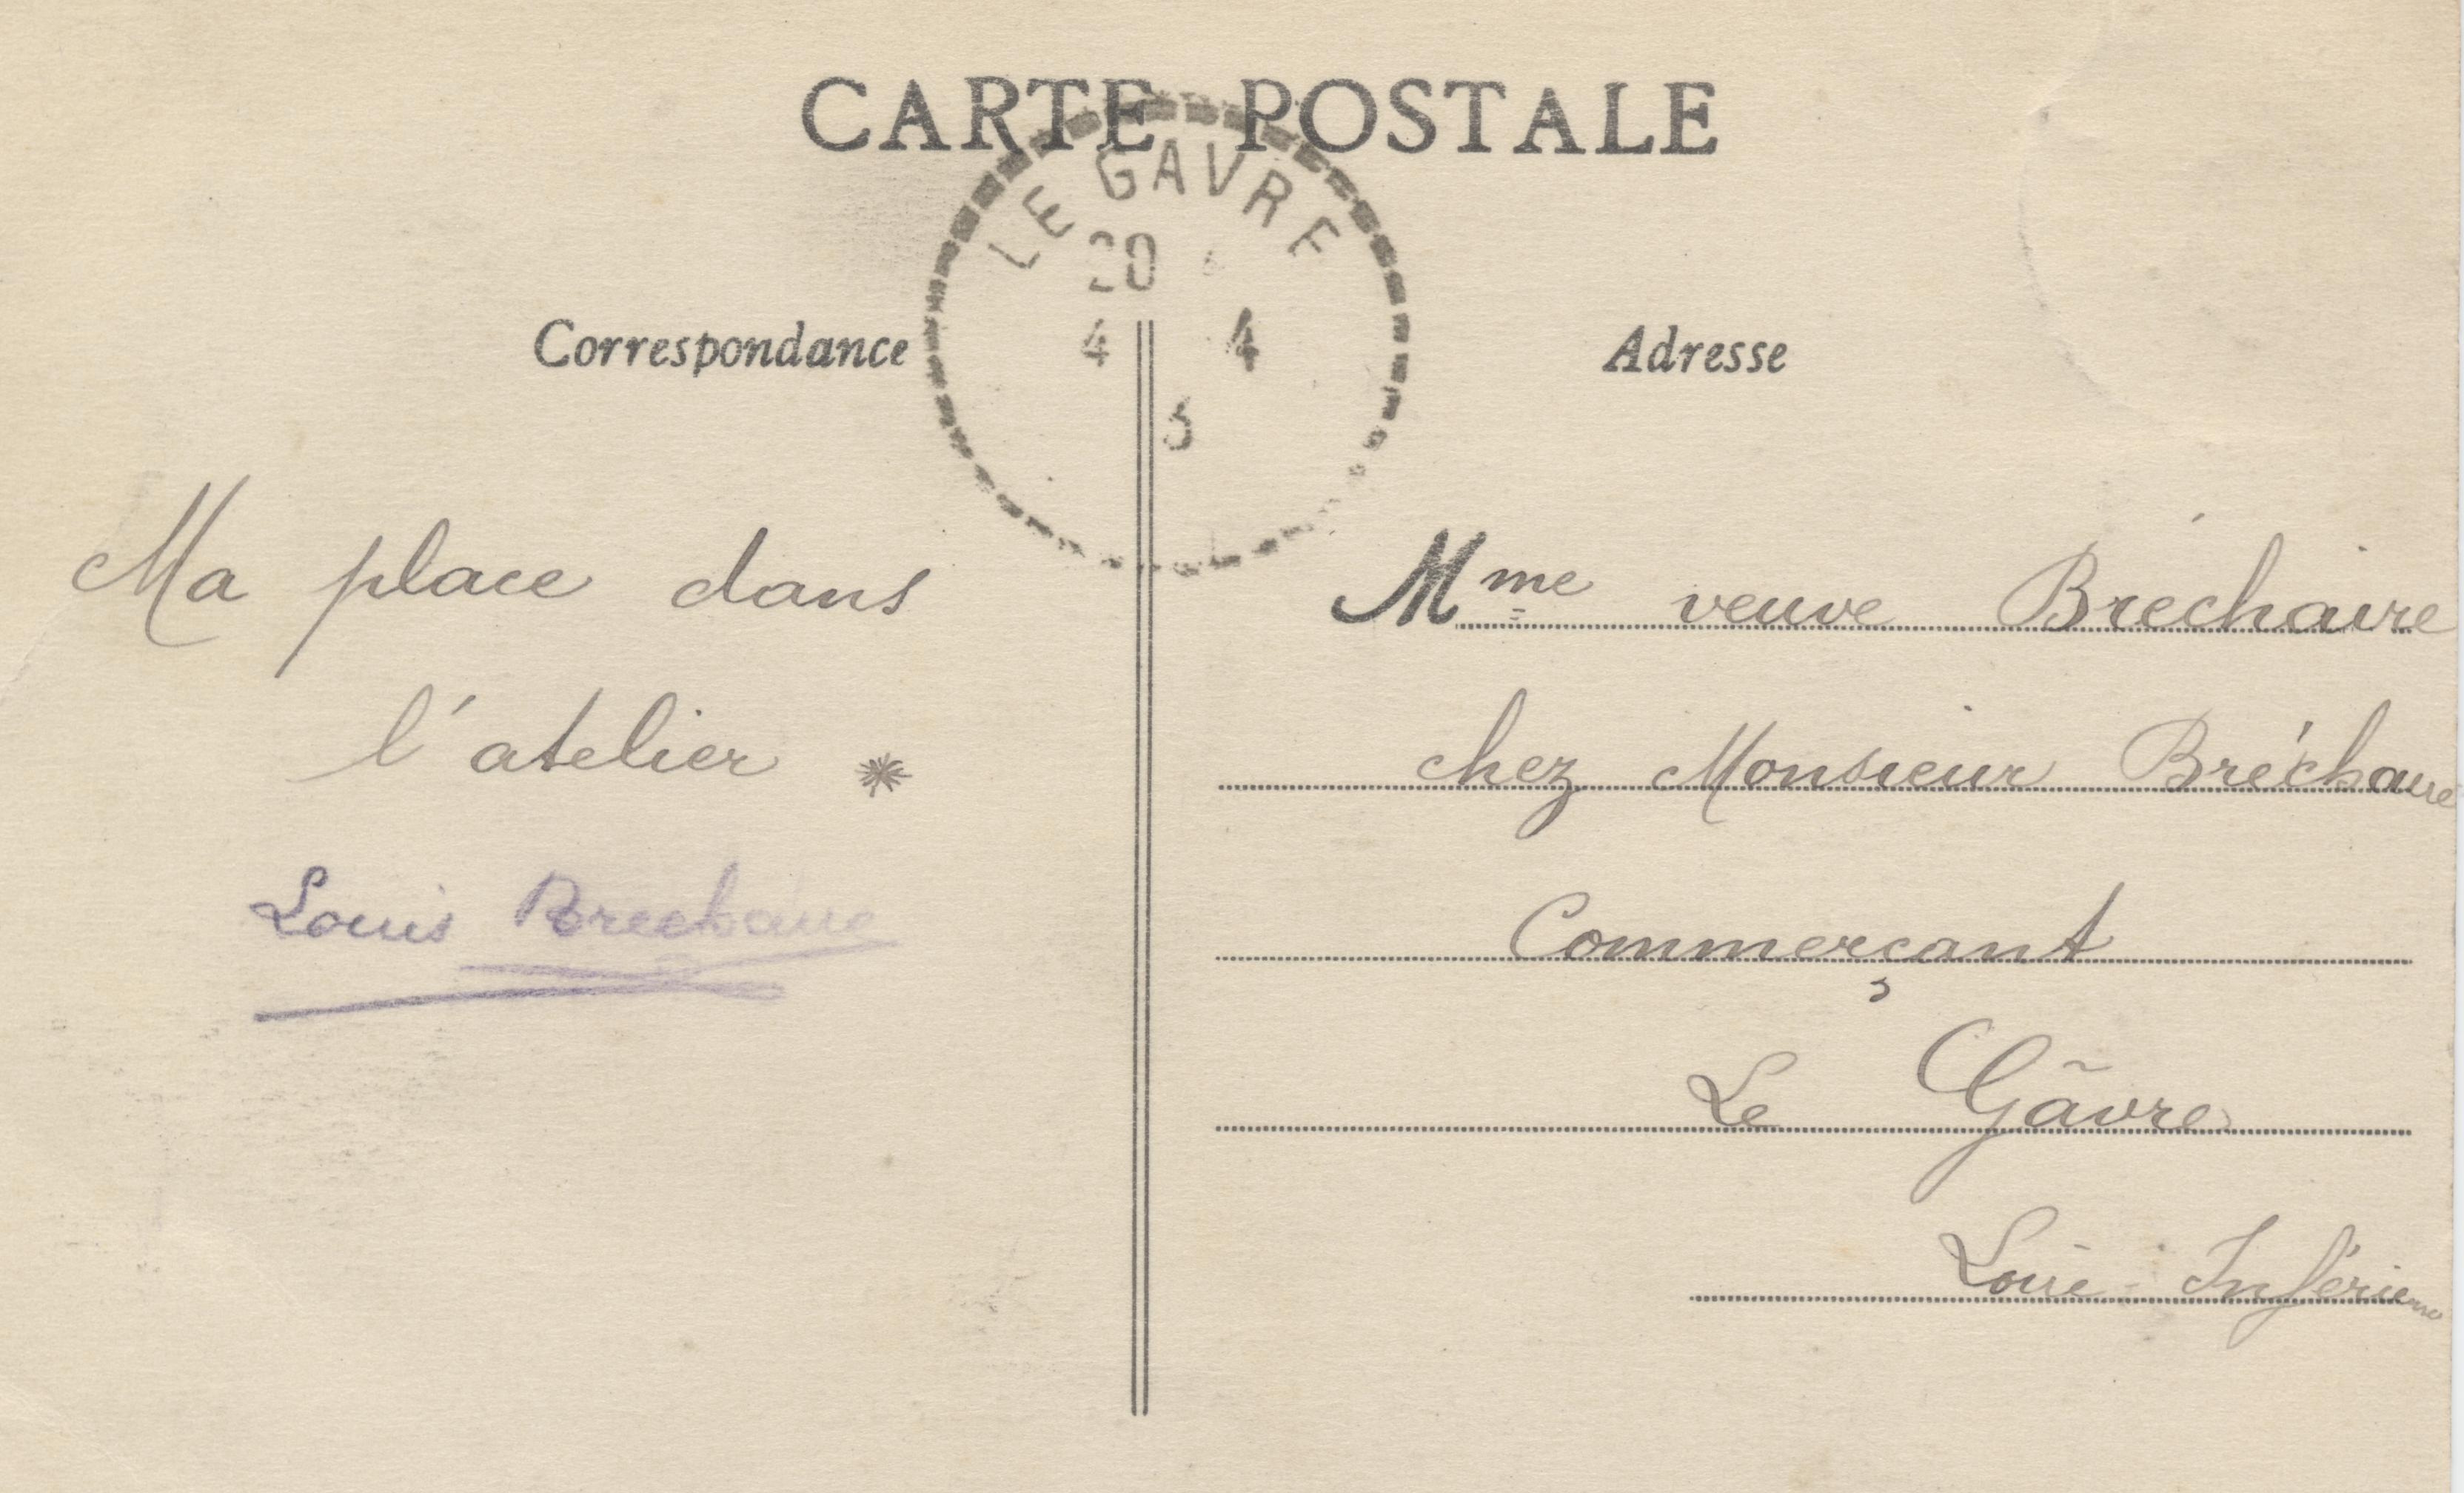 CARTE POSTALE
LE GAVRE
20
4 4
3
Correspondance
Adresse
Ma place dans
l'atelier *
Louis Brechaire
Mme veuve Bréchaire
chez Monsieur Bréchaire
Commerçant
Le Gâvre
Loire-Inférieure